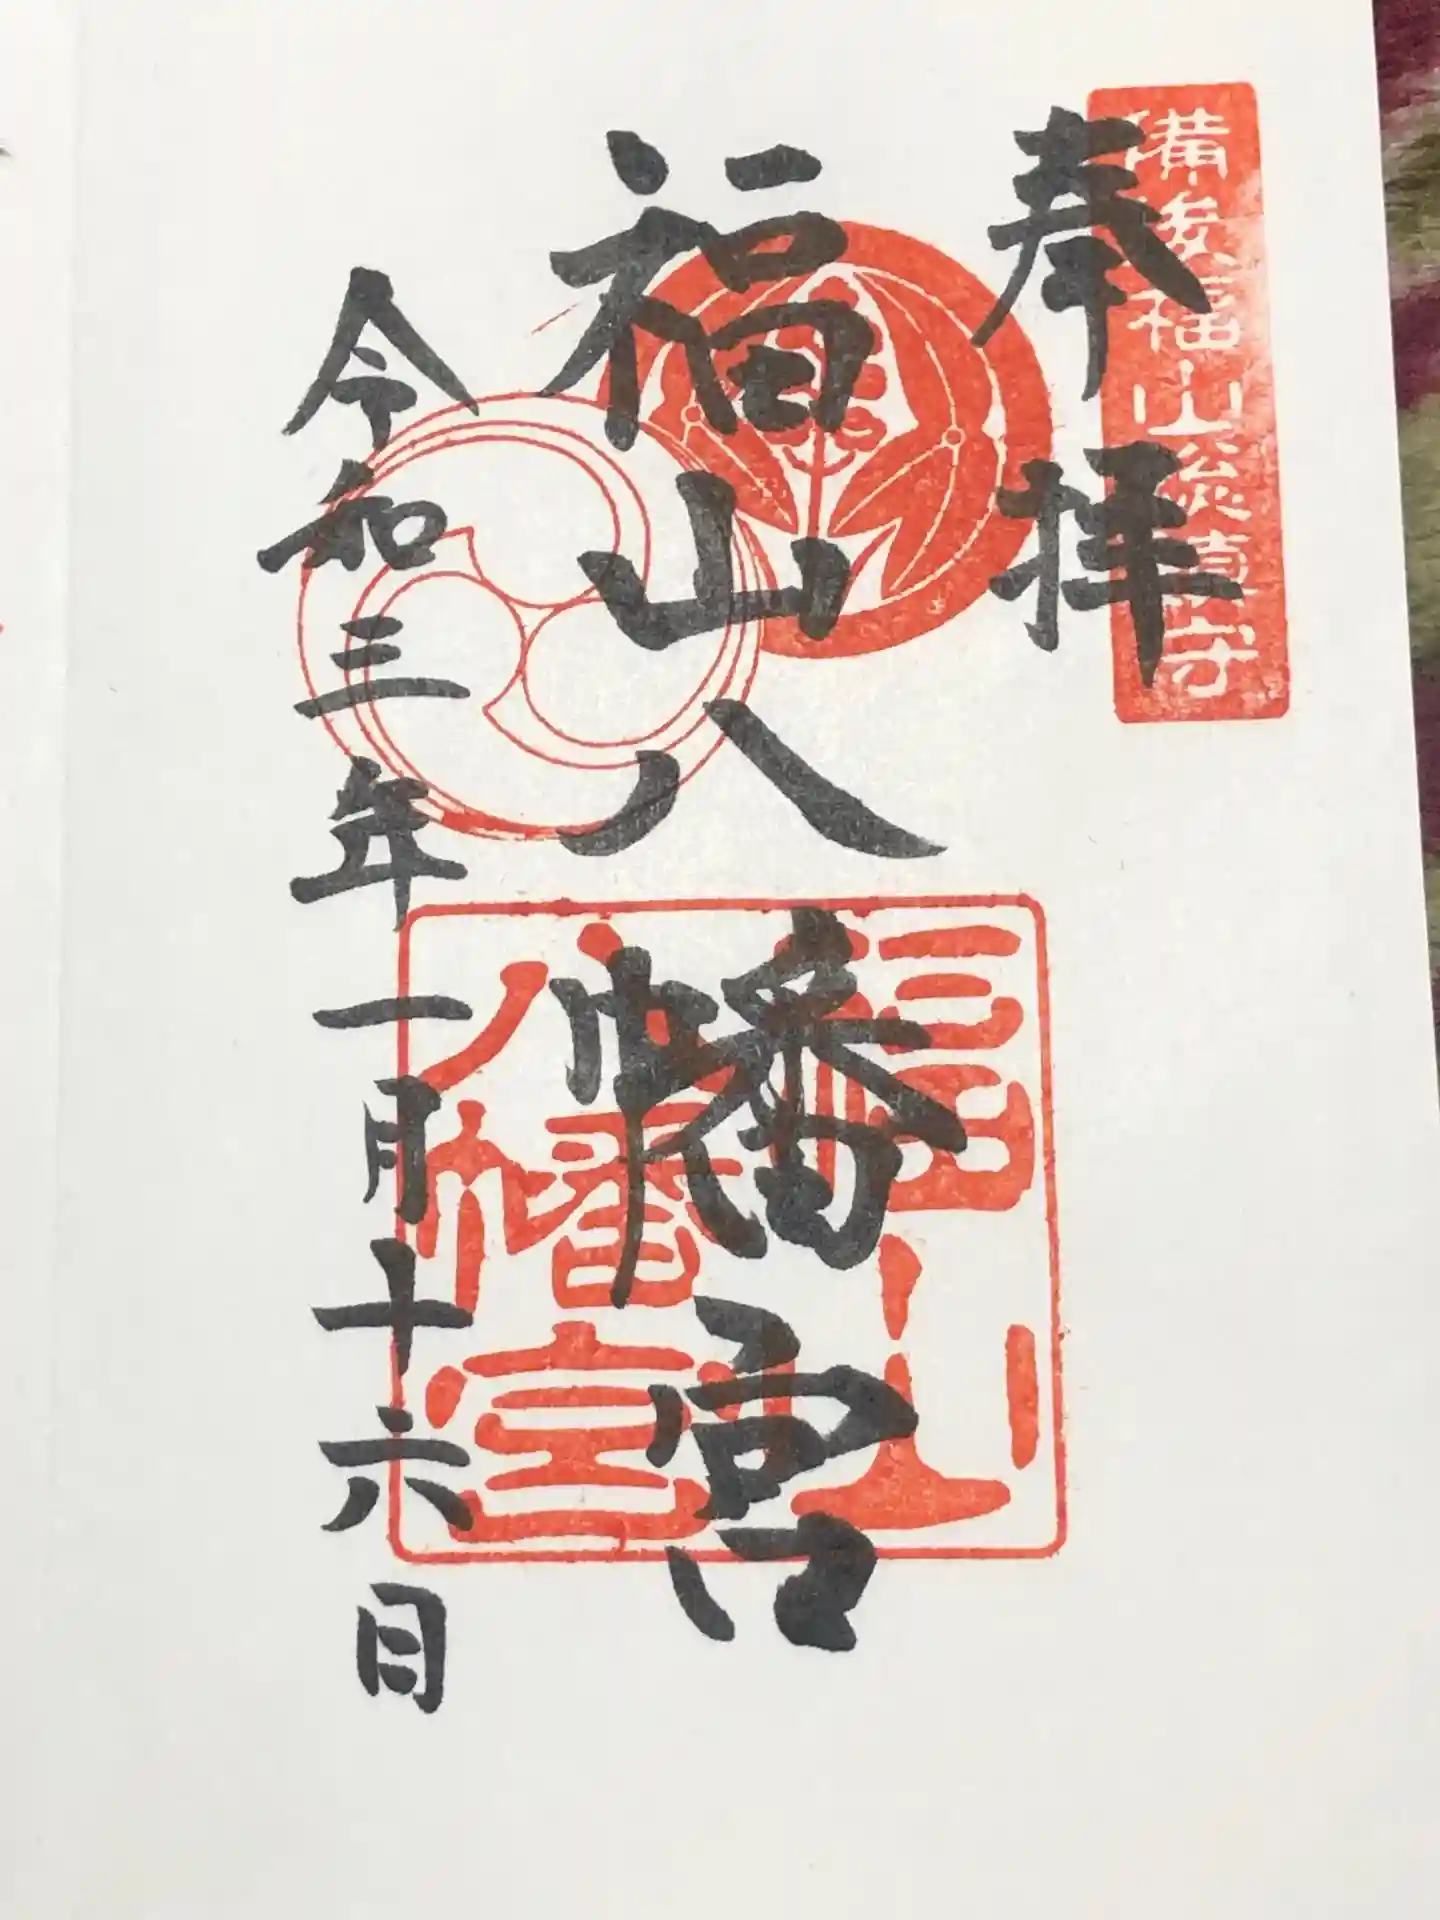 備後福山総鎮守
奉拝
福山八幡宮
福山
八幡宮
令和三年一月十六日